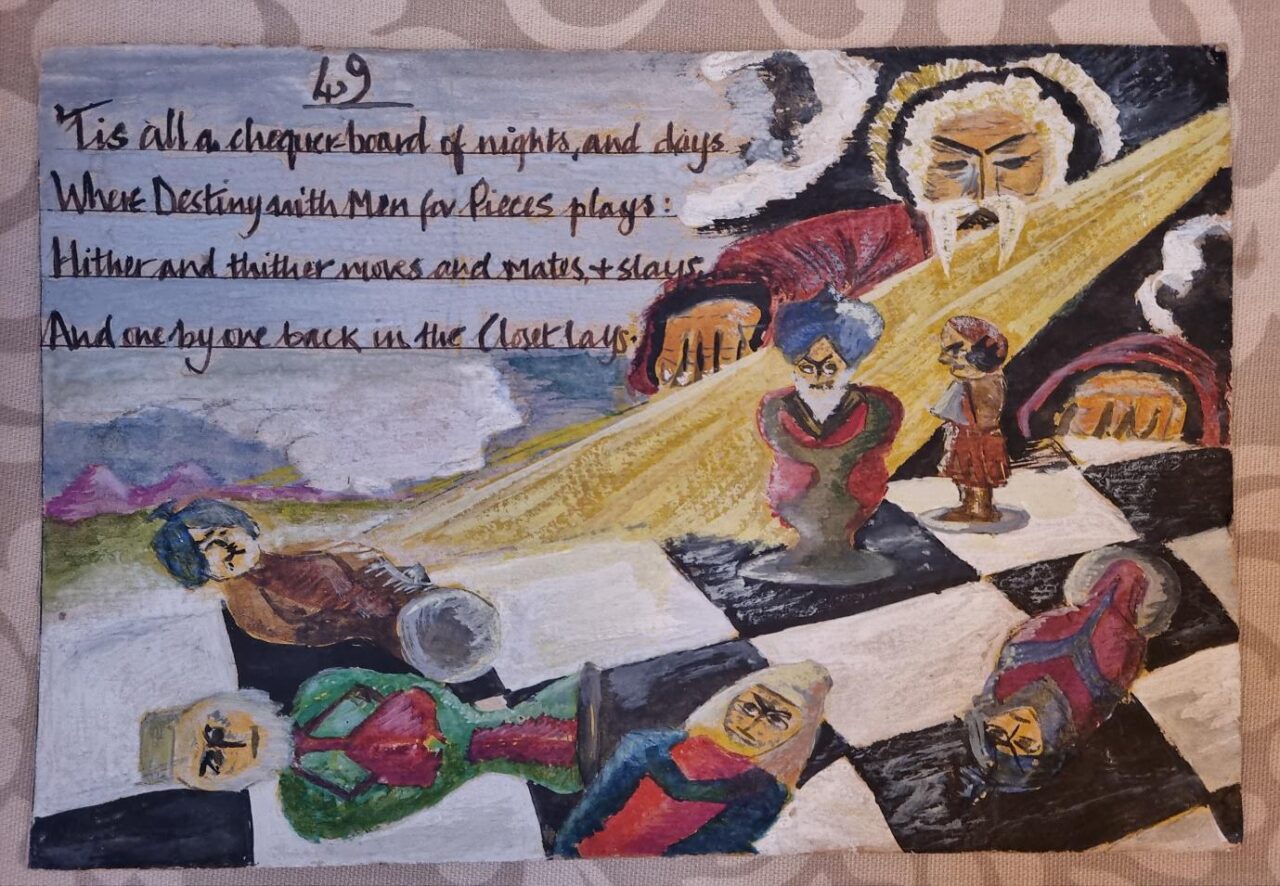 49
'Tis all a chequer-board of nights, and days
Where Destiny with Men for Pieces plays:
Hither and thither moves and mates, + slays,
And one by one back in the Closet lays.